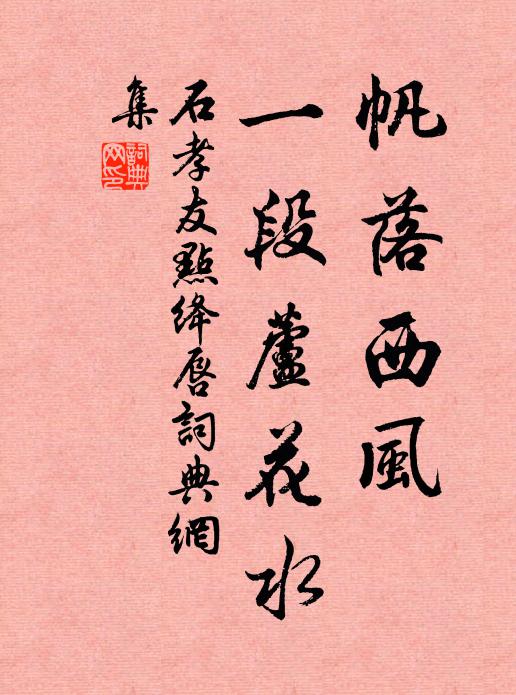 帆落西風
一段蘆花水
石孝友點絳唇詞典網
集
詞典網印